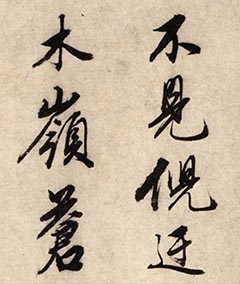 不見倪迂
木嶺蒼